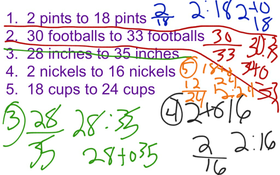 1. 2 pints to 18 pints
2. 30 footballs to 33 footballs
3. 28 inches to 35 inches
4. 2 nickels to 16 nickels
5. 18 cups to 24 cups
2/18 2:18 2 to 18
30/33
③ 28/35 28:35
28 to 35
④ 2 to 16
2/16 2:16